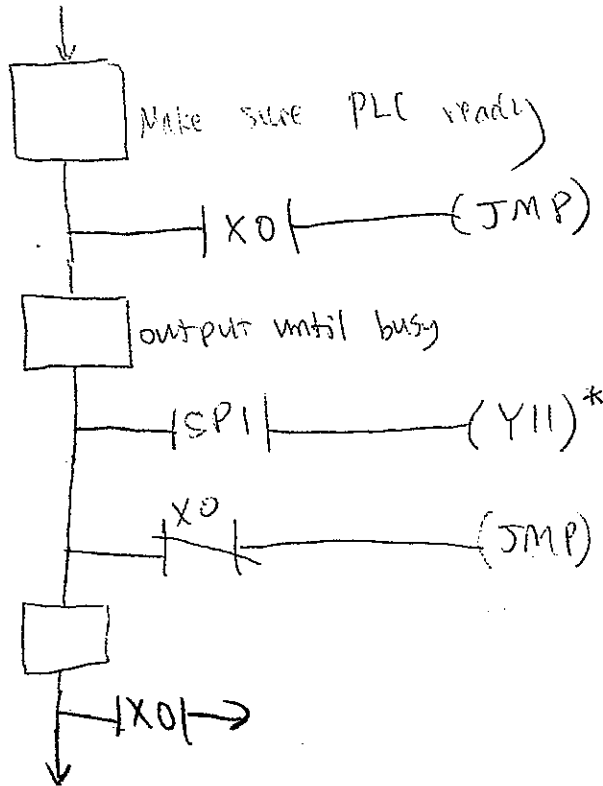 Make sure PLC ready
X0 (JMP)
output until busy
SP1 (Y11)*
X0
(JMP)
X0